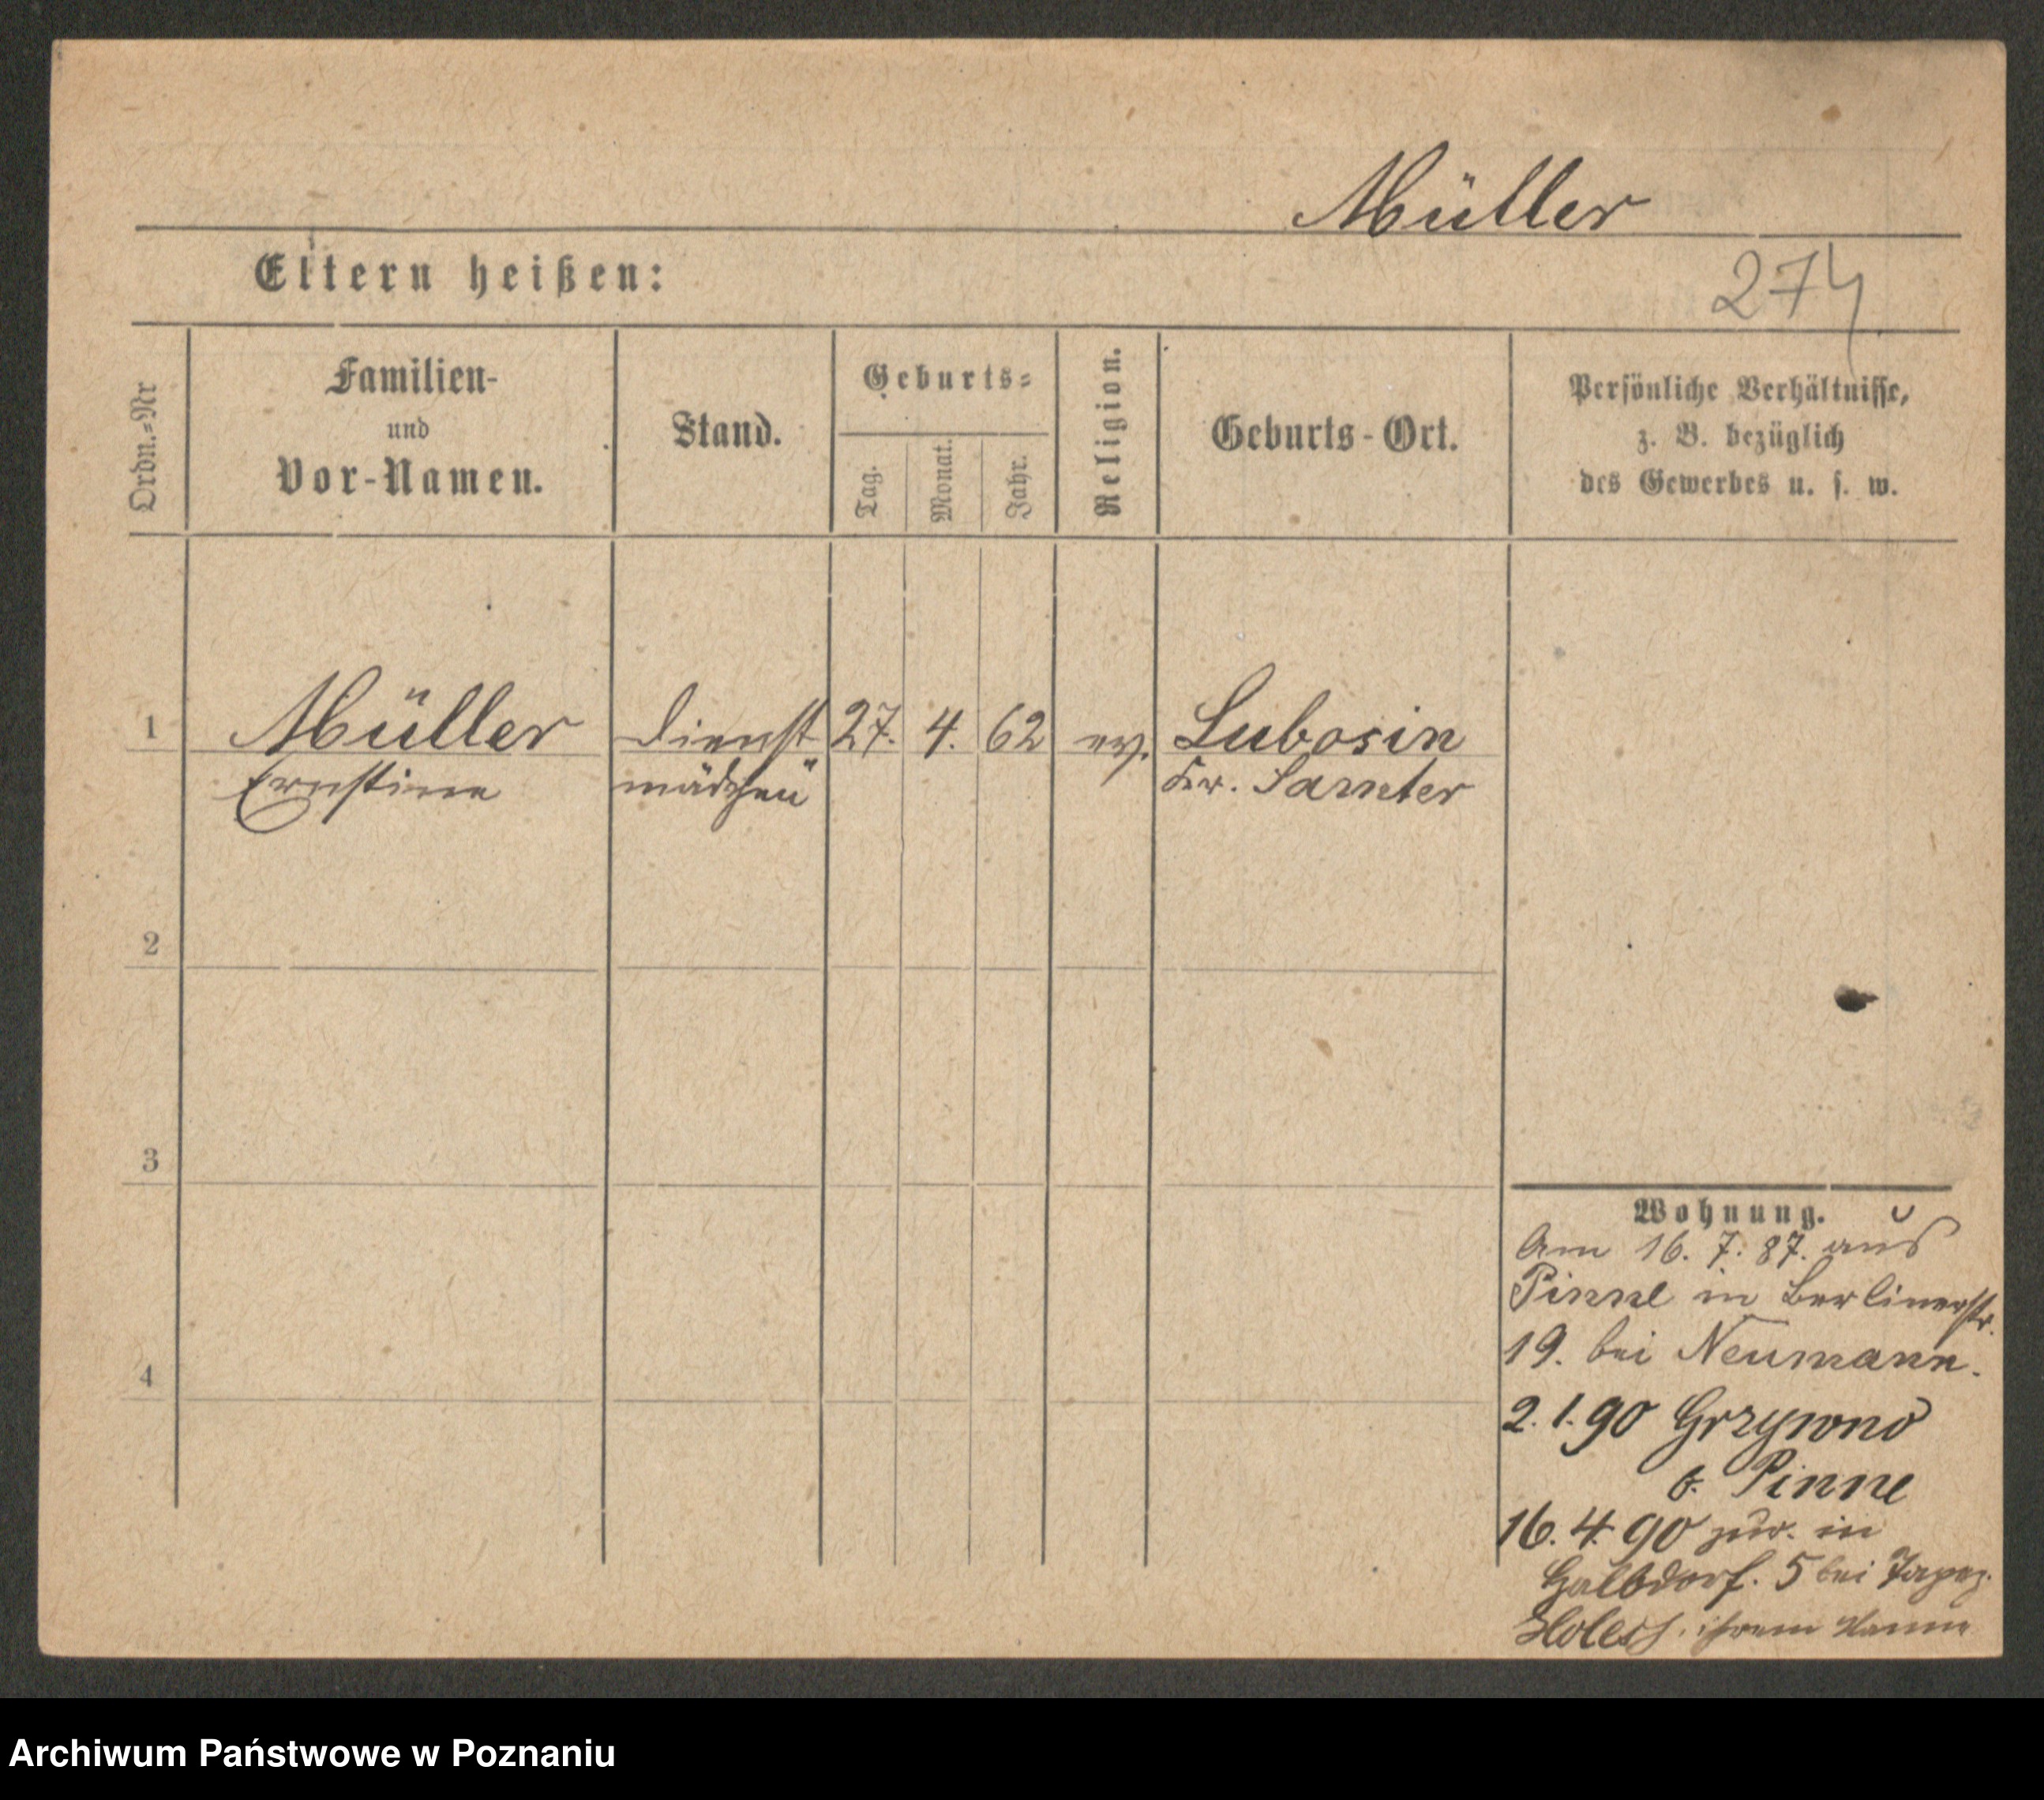 Müller
Eltern heißen:
274
Ordn.-Nr
Familien-
und
Vor-Namen.
Stand.
Geburts-
Tag.
Monat.
Jahr.
Religion.
Geburts-Ort.
Persönliche Verhältnisse,
z. B. bezüglich
des Gewerbes u. s. w.
1 Müller Dienst 27. 4. 62 ev. Lubosin
Ernestine mädchen Kr. Samter
2
3
4
Wohnung.
Am 16. 7. 87. aus
Pinne in Berlinerstr.
19. bei Neumann.
2. 1. 90 Grzywno
b. Pinne
16. 4. 90 zur. in
Halbdorf. 5 bei
ihrem
Archiwum Państwowe w Poznaniu